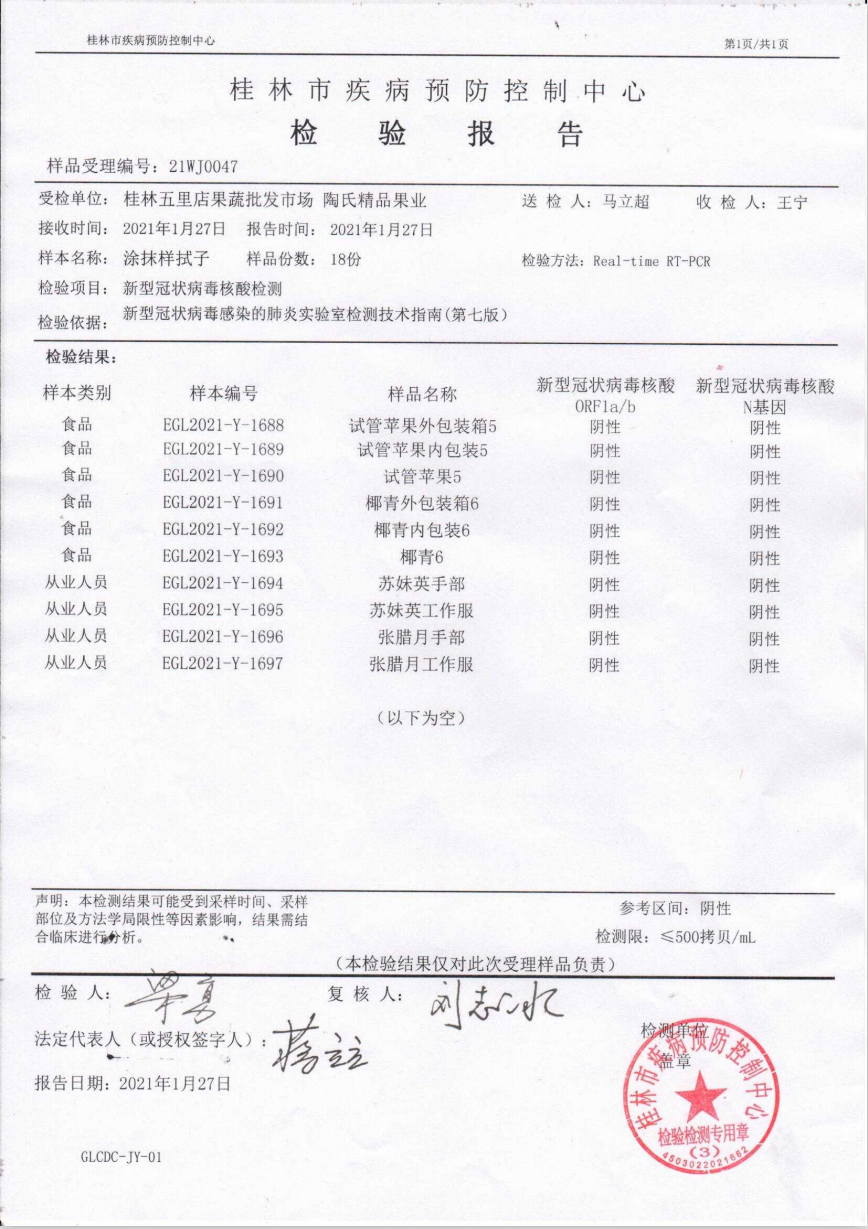 桂林市疾病预防控制中心 第1页/共1页
桂林市疾病预防控制中心
检验报告
样品受理编号：21WJ0047
受检单位：桂林五里店果蔬批发市场 陶氏精品果业 送检人：马立超 收检人：王宁
接收时间：2021年1月27日 报告时间：2021年1月27日
样本名称：涂抹样拭子 样品份数：18份 检验方法：Real-time RT-PCR
检验项目：新型冠状病毒核酸检测
检验依据：新型冠状病毒感染的肺炎实验室检测技术指南(第七版）
检验结果：
样本类别 样本编号 样品名称 新型冠状病毒核酸 新型冠状病毒核酸
ORF1a/b N基因
食品 EGL2021-Y-1688 试管苹果外包装箱5 阴性 阴性
食品 EGL2021-Y-1689 试管苹果内包装5 阴性 阴性
食品 EGL2021-Y-1690 试管苹果5 阴性 阴性
食品 EGL2021-Y-1691 椰青外包装箱6 阴性 阴性
食品 EGL2021-Y-1692 椰青内包装6 阴性 阴性
食品 EGL2021-Y-1693 椰青6 阴性 阴性
从业人员 EGL2021-Y-1694 苏妹英手部 阴性 阴性
从业人员 EGL2021-Y-1695 苏妹英工作服 阴性 阴性
从业人员 EGL2021-Y-1696 张腊月手部 阴性 阴性
从业人员 EGL2021-Y-1697 张腊月工作服 阴性 阴性
（以下为空）
声明：本检测结果可能受到采样时间、采样
部位及方法学局限性等因素影响，结果需结
合临床进行分析。
参考区间：阴性
检测限：≤500拷贝/mL
（本检验结果仅对此次受理样品负责）
检验人： 复核人：
法定代表人（或授权签字人）：
检测单位
盖章
报告日期：2021年1月27日
桂林市疾病预防控制中心
检验检测专用章
(3)
4503022021662
GLCDC-JY-01